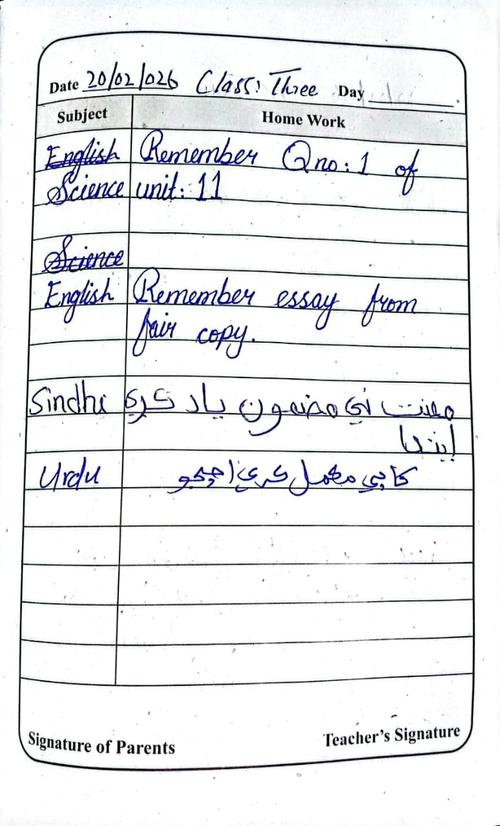 Date 20/02/026 Class: Three Day
Subject Home Work
English Remember Q no: 1 of
Science unit: 11
Science
English Remember essay from
fair copy.
Sindhi محنت تي مضمون ياد ڪري
ايندا
Urdu ڪاپي مڪمل ڪري اچجو
Signature of Parents Teacher's Signature